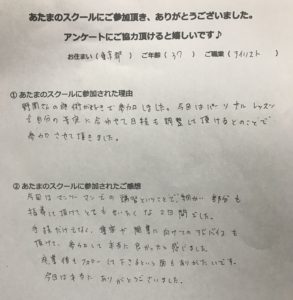 あたまのスクールにご参加頂き、ありがとうございました。
アンケートにご協力頂けると嬉しいです♪
お住まい（東京都）ご年齢（37）ご職業（セラピスト）
①あたまのスクールに参加された理由
野間先生の施術が好きで参加しました。今回はパーソナルレッスン
も自分の希望に合わせて日程も調整して頂けるとのことで
参加させて頂きました。
②あたまのスクールに参加されたご感想
今回はマンツーマンでの講習ということで、細かい部分も
指導して頂けてとてもぜいたくな2日間でした。
手技だけでなく、 開業に向けてのアドバイスも
頂けて、参加して本当に良かったと感じました。
卒業後もフォローして下さるという面もありがたいです。
今回は本当にありがとうございました。